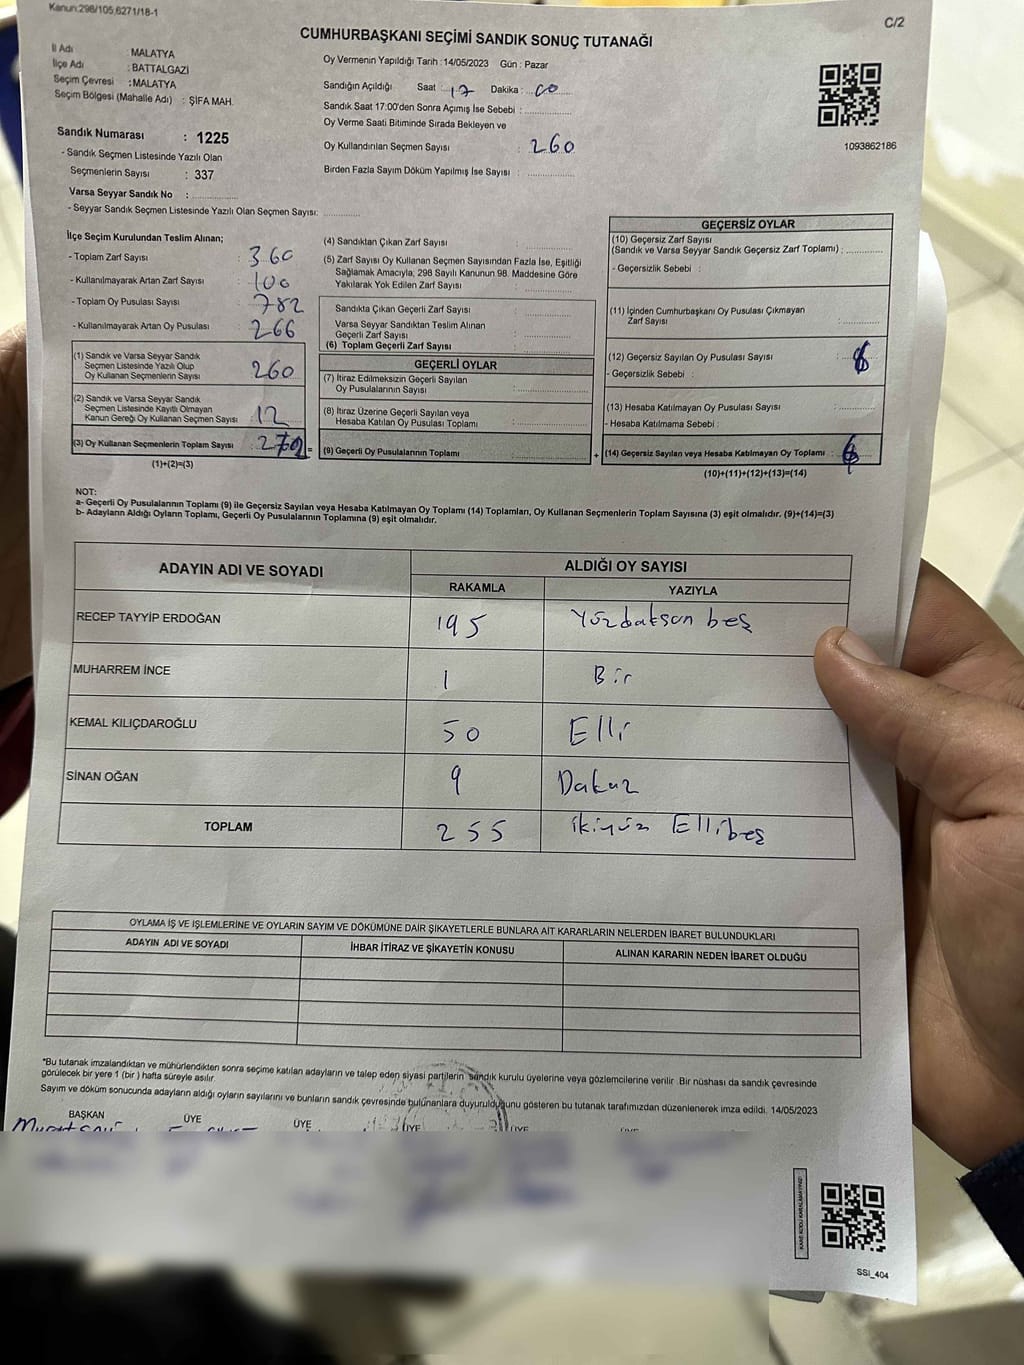 Kanun:298/105,6271/18-1
C/2
CUMHURBAŞKANI SEÇİMİ SANDIK SONUÇ TUTANAĞI
İl Adı : MALATYA
İlçe Adı : BATTALGAZİ
Seçim Çevresi : MALATYA
Seçim Bölgesi (Mahalle Adı) : ŞİFA MAH.
Sandık Numarası : 1225
- Sandık Seçmen Listesinde Yazılı Olan
Seçmenlerin Sayısı : 337
Varsa Seyyar Sandık No :
- Seyyar Sandık Seçmen Listesinde Yazılı Olan Seçmen Sayısı:
Oy Vermenin Yapıldığı Tarih :14/05/2023 Gün : Pazar
Sandığın Açıldığı Saat : 17 Dakika : 00
Sandık Saat 17:00'den Sonra Açımış İse Sebebi :
Oy Verme Saati Bitiminde Sırada Bekleyen ve
Oy Kullandırılan Seçmen Sayısı : 260
Birden Fazla Sayım Döküm Yapılmış İse Sayısı :
1093862186
İlçe Seçim Kurulundan Teslim Alınan;
- Toplam Zarf Sayısı : 360
- Kullanılmayarak Artan Zarf Sayısı : 100
- Toplam Oy Pusulası Sayısı : 782
- Kullanılmayarak Artan Oy Pusulası : 266
(1) Sandık ve Varsa Seyyar Sandık
Seçmen Listesinde Yazılı Olup
Oy Kullanan Seçmenlerin Sayısı : 260
(2) Sandık ve Varsa Seyyar Sandık
Seçmen Listesinde Kayıtlı Olmayan
Kanun Gereği Oy Kullanan Seçmen Sayısı : 12
(3) Oy Kullanan Seçmenlerin Toplam Sayısı : =
(1)+(2)=(3)
(4) Sandıktan Çıkan Zarf Sayısı :
(5) Zarf Sayısı Oy Kullanan Seçmen Sayısından Fazla İse, Eşitliği
Sağlamak Amacıyla; 298 Sayılı Kanunun 98. Maddesine Göre
Yakılarak Yok Edilen Zarf Sayısı :
Sandıkta Çıkan Geçerli Zarf Sayısı :
Varsa Seyyar Sandıktan Teslim Alınan
Geçerli Zarf Sayısı :
(6) Toplam Geçerli Zarf Sayısı :
GEÇERLİ OYLAR
(7) İtiraz Edilmeksizin Geçerli Sayılan
Oy Pusulalarının Sayısı :
(8) İtiraz Üzerine Geçerli Sayılan veya
Hesaba Katılan Oy Pusulası Toplamı :
(9) Geçerli Oy Pusulalarının Toplamı : +
GEÇERSİZ OYLAR
(10) Geçersiz Zarf Sayısı
(Sandık ve Varsa Seyyar Sandık Geçersiz Zarf Toplamı) :
- Geçersizlik Sebebi :
(11) İçinden Cumhurbaşkanı Oy Pusulası Çıkmayan
Zarf Sayısı :
(12) Geçersiz Sayılan Oy Pusulası Sayısı :
- Geçersizlik Sebebi :
(13) Hesaba Katılmayan Oy Pusulası Sayısı :
- Hesaba Katılmama Sebebi :
(14) Geçersiz Sayılan veya Hesaba Katılmayan Oy Toplamı :
(10)+(11)+(12)+(13)=(14)
NOT:
a- Geçerli Oy Pusulalarının Toplamı (9) ile Geçersiz Sayılan veya Hesaba Katılmayan Oy Toplamı (14) Toplamları, Oy Kullanan Seçmenlerin Toplam Sayısına (3) eşit olmalıdır. (9)+(14)=(3)
b- Adayların Aldığı Oyların Toplamı, Geçerli Oy Pusulalarının Toplamına (9) eşit olmalıdır.
ADAYIN ADI VE SOYADI ALDIĞI OY SAYISI
RAKAMLA YAZIYLA
RECEP TAYYİP ERDOĞAN 195 Yüzdoksan beş
MUHARREM İNCE 1 Bir
KEMAL KILIÇDAROĞLU 50 Elli
SİNAN OĞAN 9 Dokuz
TOPLAM 255 ikiyüz Ellibeş
OYLAMA İŞ VE İŞLEMLERİNE VE OYLARIN SAYIM VE DÖKÜMÜNE DAİR ŞİKAYETLERLE BUNLARA AİT KARARLARIN NELERDEN İBARET BULUNDUKLARI
ADAYIN ADI VE SOYADI İHBAR İTİRAZ VE ŞİKAYETİN KONUSU ALINAN KARARIN NEDEN İBARET OLDUĞU
*Bu tutanak imzalandıktan ve mühürlendikten sonra seçime katılan adayların ve talep eden siyasi partilerin sandık kurulu üyelerine veya gözlemcilerine verilir .Bir nüshası da sandık çevresinde
görülecek bir yere 1 (bir ) hafta süreyle asılır.
Sayım ve döküm sonucunda adayların aldığı oyların sayılarını ve bunların sandık çevresinde bulunanlara duyurulduğunu gösteren bu tutanak tarafımızdan düzenlenerek imza edildi. 14/05/2023
BAŞKAN ÜYE ÜYE ÜYE ÜYE ÜYE
SSI_404